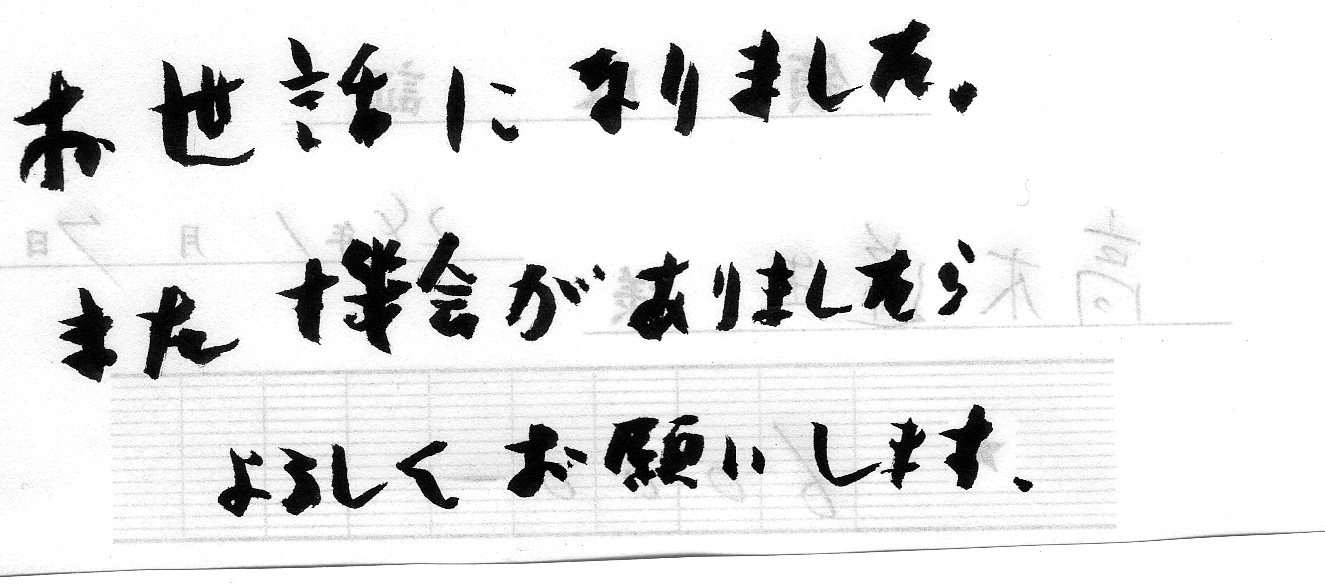 お世話になりました。
また機会がありましたら
よろしくお願いします、